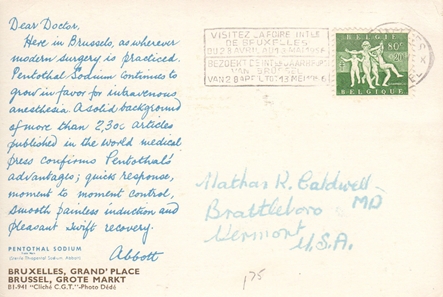 Dear Doctor,
Here in Brussels, as wherever
modern surgery is practiced,
Pentothal Sodium continues to
grow in favor for intravenous
anesthesia. A solid background
of more than 2,300 articles
published in the world medical
press confirms Pentothal's
advantages; quick response,
moment to moment control,
smooth painless induction and
pleasant swift recovery.
Abbott
PENTOTHAL SODIUM
(Thiopental Sodium, Abbott)
BRUXELLES, GRAND' PLACE
BRUSSEL, GROTE MARKT
B1-941 "Cliché C.G.T."-Photo Dédé
VISITEZ LA FOIRE INTLE
DE BRUXELLES
BEZOEKT DE INT. JAARBEURS
VAN BRUSSEL
BELGIE
80c
+20c
BELGIQUE
Nathan R. Caldwell
MD
Brattleboro
Vermont
U.S.A.
175